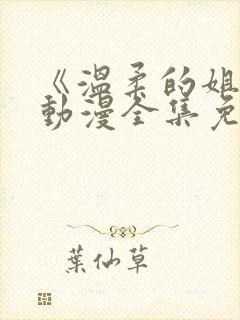 《温柔的姐
动漫全集免
葉仙草